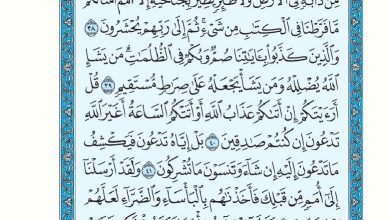 مِن دَآبَّةٍ فِى ٱلْأَرْضِ وَلَا طَٰٓئِرٍ يَطِيرُ بِجَنَاحَيْهِ إِلَّآ أُمَمٌ أَمْثَالُكُم
مَّا فَرَّطْنَا فِى ٱلْكِتَٰبِ مِن شَىْءٍ ثُمَّ إِلَىٰ رَبِّهِمْ يُحْشَرُونَ ٣٨
وَٱلَّذِينَ كَذَّبُوا۟ بِـَٔايَٰتِنَا صُمٌّ وَبُكْمٌ فِى ٱلظُّلُمَٰتِ مَن يَشَإِ
ٱللَّهُ يُضْلِلْهُ وَمَن يَشَأْ يَجْعَلْهُ عَلَىٰ صِرَٰطٍ مُّسْتَقِيمٍ ٣٩ قُلْ
أَرَءَيْتَكُمْ إِنْ أَتَىٰكُمْ عَذَابُ ٱللَّهِ أَوْ أَتَتْكُمُ ٱلسَّاعَةُ أَغَيْرَ ٱللَّهِ
تَدْعُونَ إِن كُنتُمْ صَٰدِقِينَ ٤٠ بَلْ إِيَّاهُ تَدْعُونَ فَيَكْشِفُ
مَا تَدْعُونَ إِلَيْهِ إِن شَآءَ وَتَنسَوْنَ مَا تُشْرِكُونَ ٤١ وَلَقَدْ أَرْسَلْنَآ
إِلَىٰٓ أُمَمٍ مِّن قَبْلِكَ فَأَخَذْنَٰهُم بِٱلْبَأْسَآءِ وَٱلضَّرَّآءِ لَعَلَّهُمْ